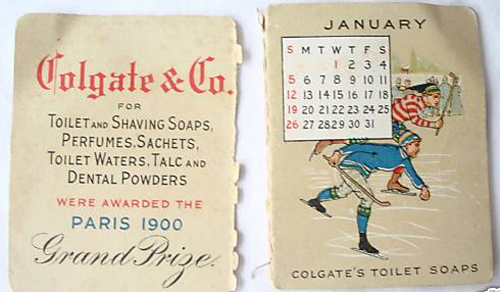 Colgate & Co.
FOR
TOILET AND SHAVING SOAPS,
PERFUMES, SACHETS,
TOILET WATERS, TALC AND
DENTAL POWDERS
WERE AWARDED THE
PARIS 1900
Grand Prize.
JANUARY
S M T W T F S
1 2 3 4
5 6 7 8 9 10 11
12 13 14 15 16 17 18
19 20 21 22 23 24 25
26 27 28 29 30 31
COLGATE'S TOILET SOAPS